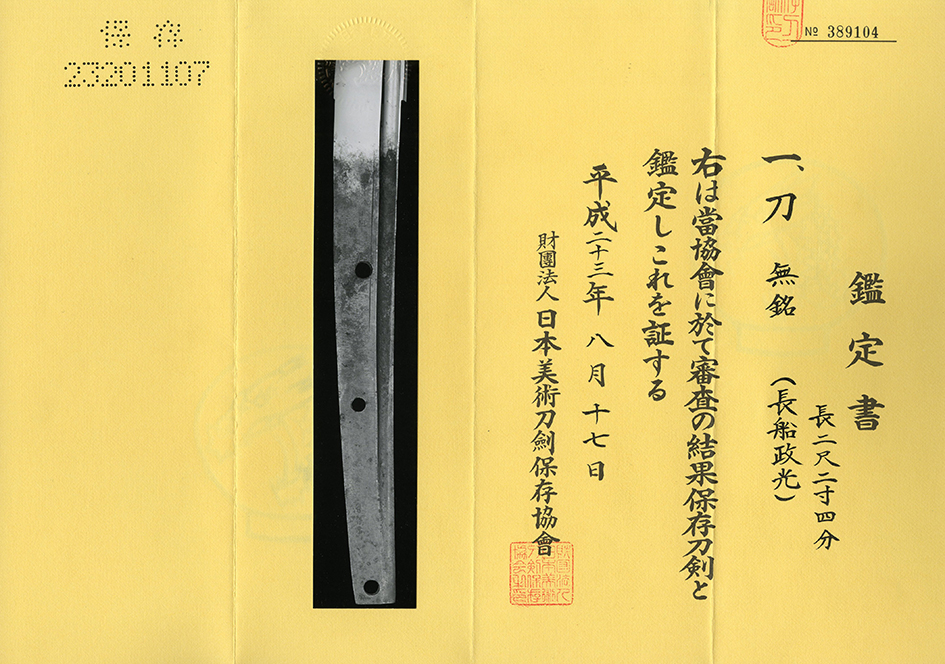 鑑定書
一、刀 無銘 (長船政光)
長二尺二寸四分
右は當協會に於て審査の結果保存刀剣と
鑑定しこれを証する
平成二十三年 八月 十七日
財團法人 日本美術刀劍保存協會
№ 389104
保存
23201107